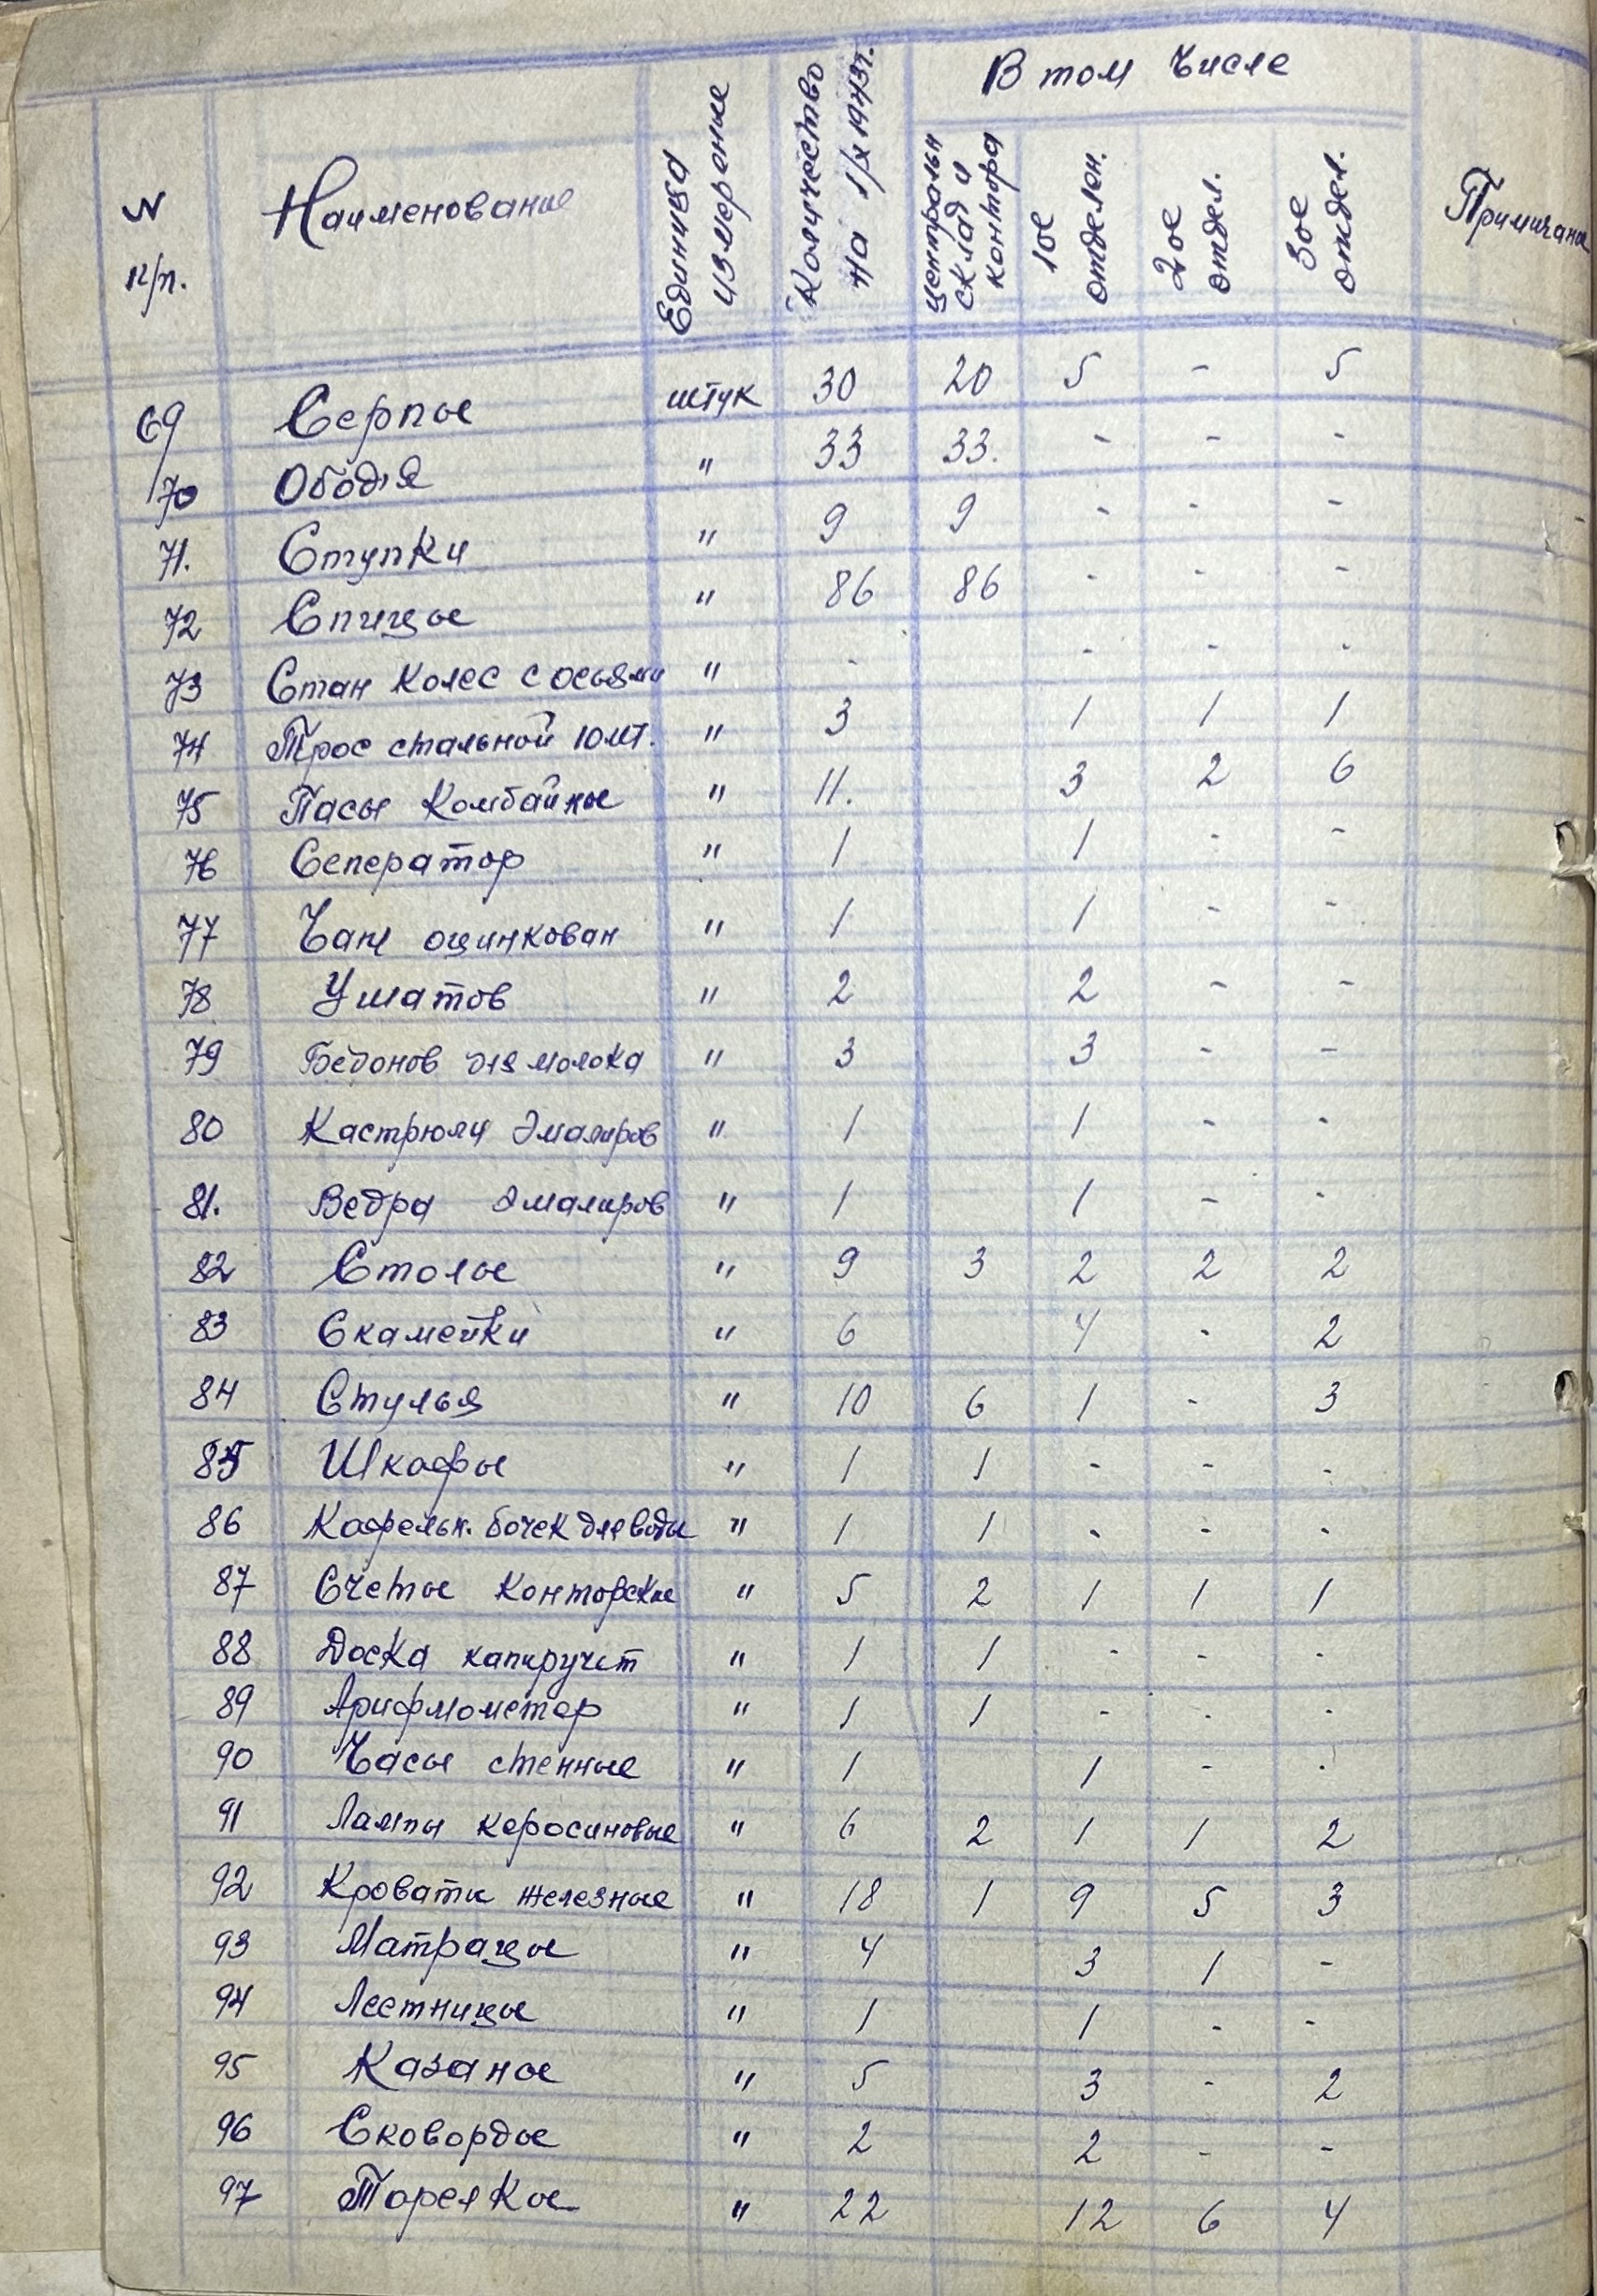 N п/п. Наименование Единица измерение Количество на 1/X 1943г. В том числе Примичание
центральн склад и контора 1ое отделен. 2ое отдел. 3ое отдел.
69 Серпы штук 30 20 5 - 5
70 Ободья " 33 33. - - -
71. Ступки " 9 9 - - -
72 Спицы " 86 86 - - -
73 Стан колес с осьями " - - - -
74 Трос стальной 10 мт. " 3 1 1 1
75 Пасы Комбайны " 11. 3 2 6
76 Сеператор " 1 1 - -
77 Чан оцинкован " 1 1 - -
78 Ушатов " 2 2 - -
79 Бедонов для молока " 3 3 - -
80 Кастрюли эмалиров " 1 1 - -
81. Ведра эмалиров " 1 1 - -
82 Столы " 9 3 2 2 2
83 Скамейки " 6 4 - 2
84 Стулья " 10 6 1 - 3
85 Шкафы " 1 1 - - -
86 Кафельн. бочек для воды " 1 1 - - -
87 Счеты конторские " 5 2 1 1 1
88 Доска капиручет " 1 1 - - -
89 Арифмометер " 1 1 - - -
90 Часы стенные " 1 1 - -
91 Лампы керосиновые " 6 2 1 1 2
92 Кровати железные " 18 1 9 5 3
93 Матрацы " 4 3 1 -
94 Лестницы " 1 1 - -
95 Казаны " 5 3 - 2
96 Сковорды " 2 2 - -
97 Торелкы " 22 12 6 4